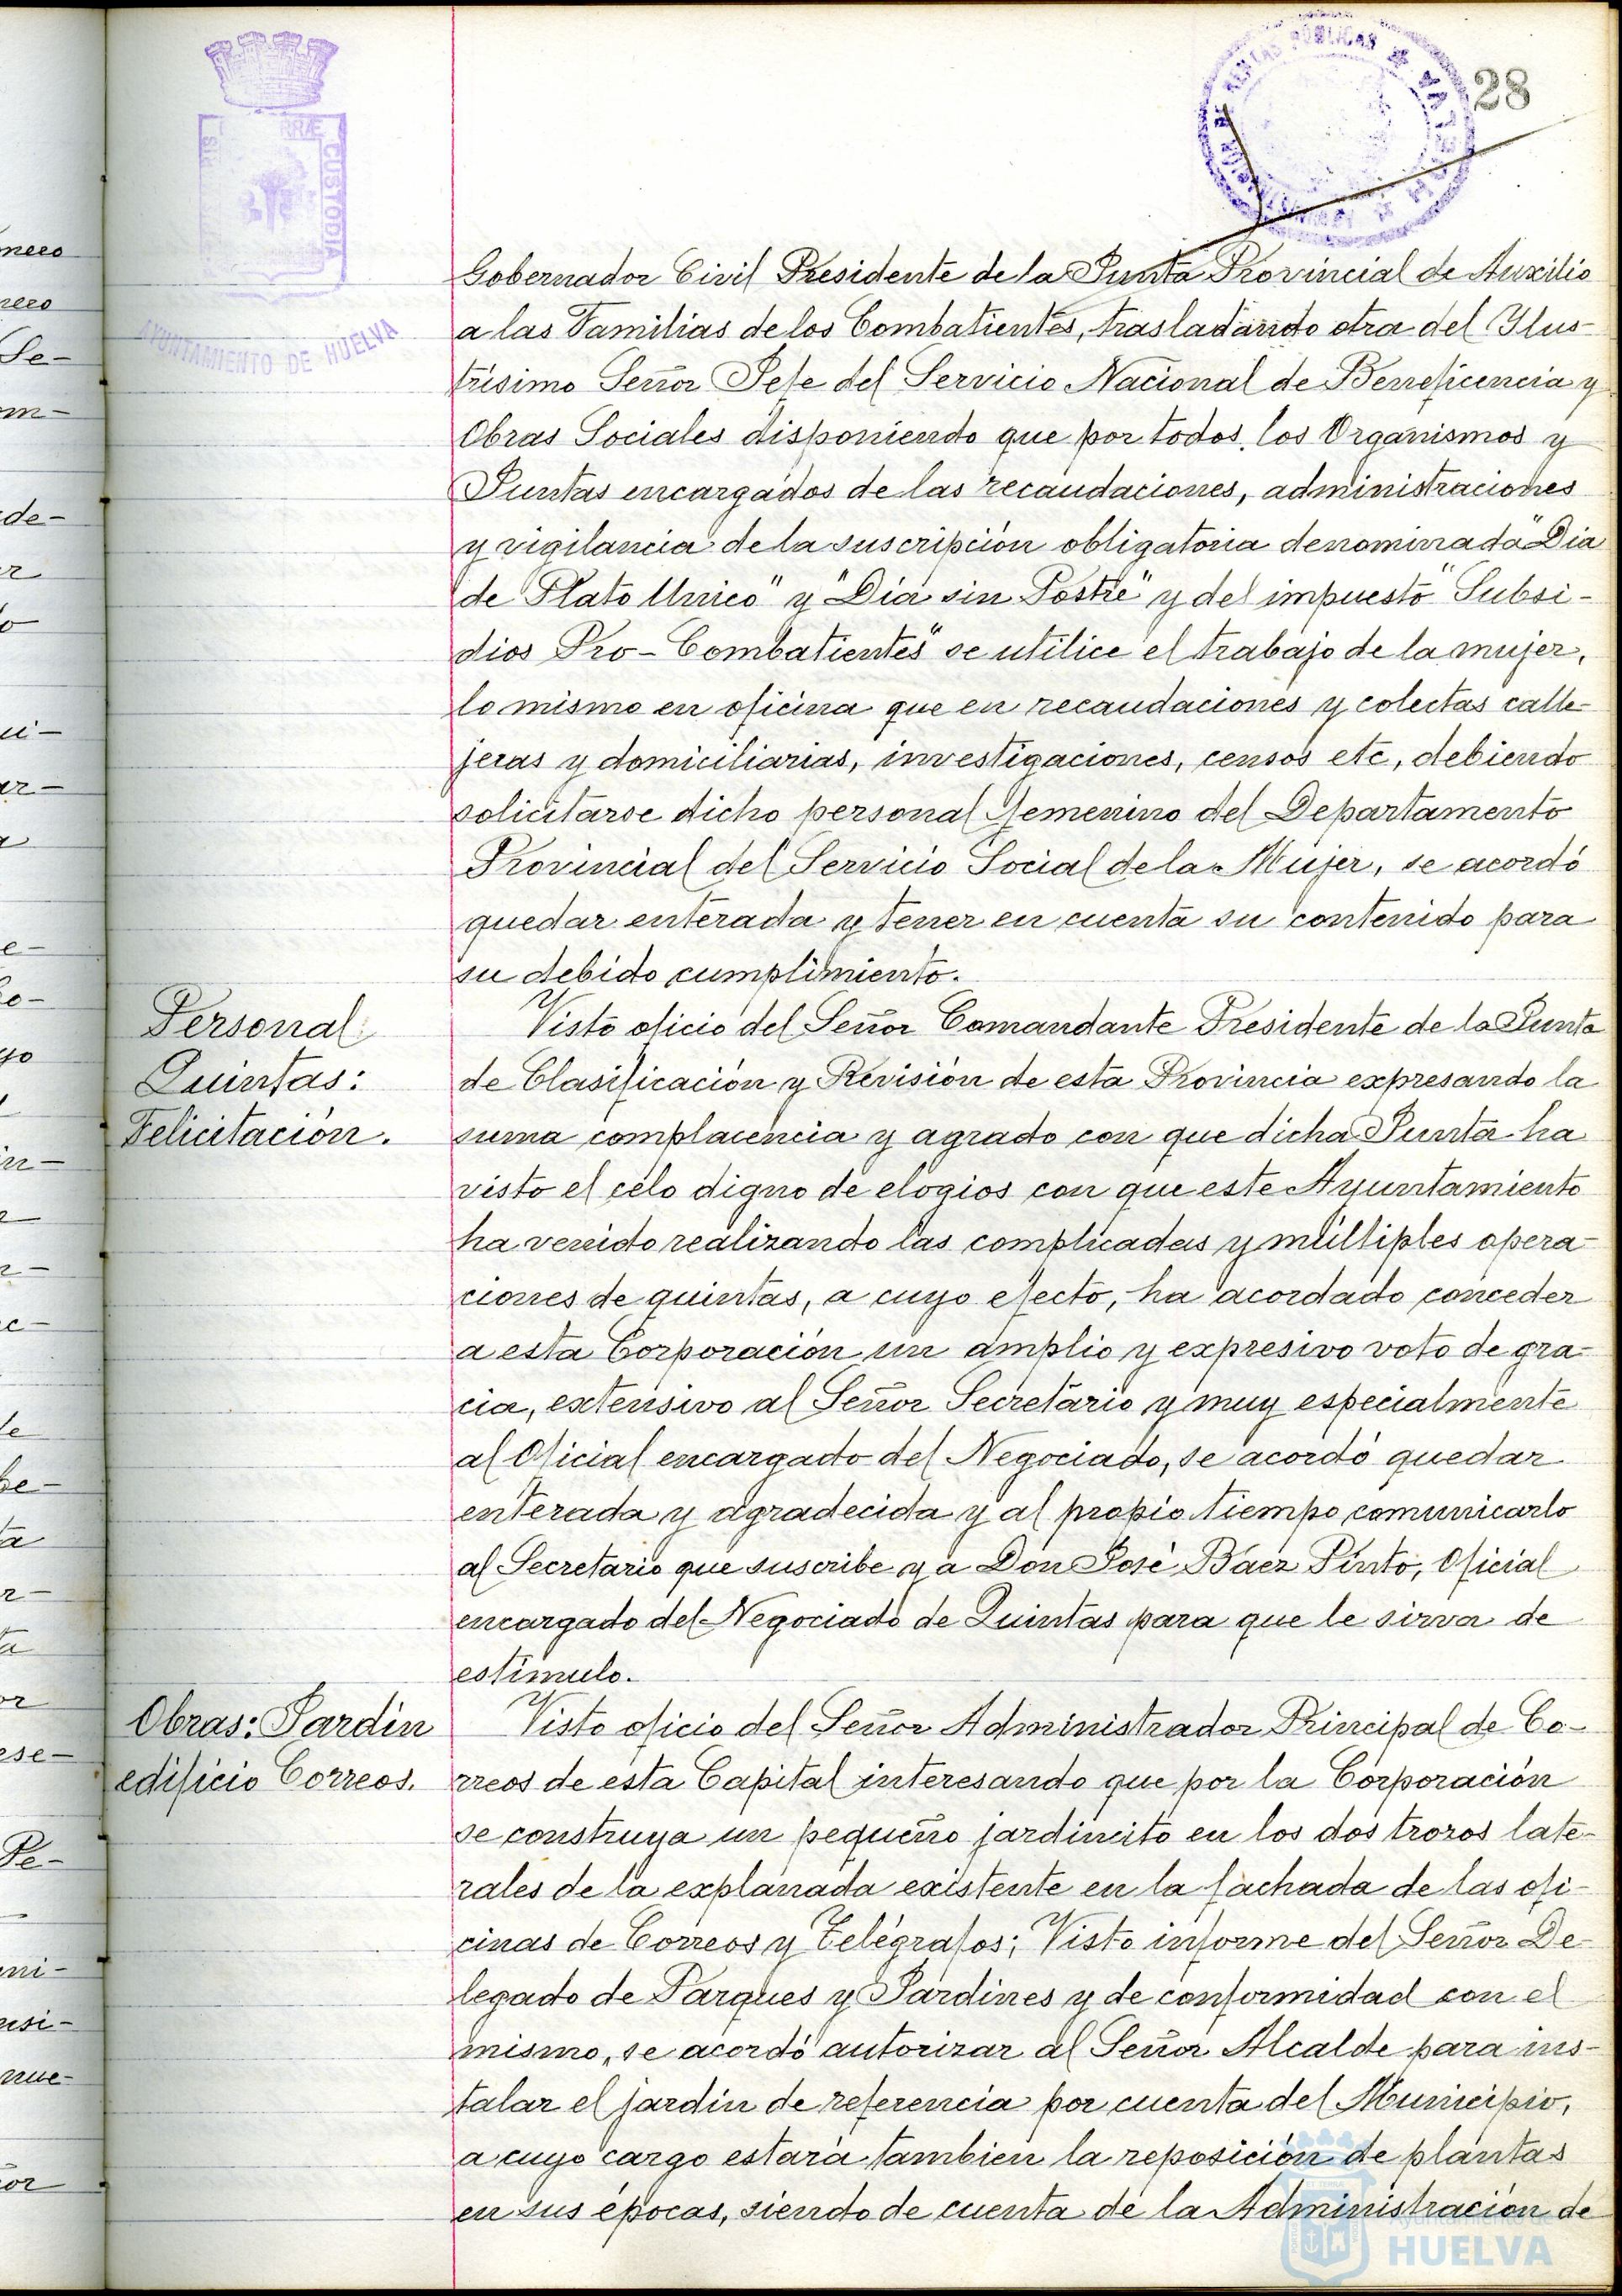 28
PORTUS MARIS ET TERRÆ CUSTODIA
AYUNTAMIENTO DE HUELVA
Gobernador Civil Presidente de la Junta Provincial de Auxilio
a las Familias de los Combatientes, trasladando otra del Ylus-
trísimo Señor Jefe del Servicio Nacional de Beneficencia y
Obras Sociales disponiendo que por todos los Organismos y
Juntas encargados de las recaudaciones, administraciones
y vigilancia de la suscripción obligatoria denominada "Dia
de Plato Unico" y "Dia sin Postre" y del impuesto "Subsi-
dios Pro-Combatientes" se utilice el trabajo de la mujer,
lo mismo en oficina que en recaudaciones y colectas calle-
jeras y domiciliarias, investigaciones, censos etc, debiendo
solicitarse dicho personal femenino del Departamento
Provincial del Servicio Social de la Mujer, se acordó
quedar enterada y tener en cuenta su contenido para
su debido cumplimiento.
Personal
Quintas:
Felicitación.
Visto oficio del Señor Comandante Presidente de la Junta
de Clasificación y Revisión de esta Provincia expresando la
suma complacencia y agrado con que dicha Junta ha
visto el celo digno de elogios con que este Ayuntamiento
ha venido realizando las complicadas y múltiples opera-
ciones de quintas, a cuyo efecto, ha acordado conceder
a esta Corporación un amplio y expresivo voto de gra-
cia, extensivo al Señor Secretario y muy especialmente
al Oficial encargado del Negociado, se acordó quedar
enterada y agradecida y al propio tiempo comunicarlo
al Secretario que suscribe y a Don José Báez Pinto, Oficial
encargado del Negociado de Quintas para que le sirva de
estímulo.
Obras: Jardín
edificio Correos.
Visto oficio del Señor Administrador Principal de Co-
rreos de esta Capital interesando que por la Corporación
se construya un pequeño jardincito en los dos trozos late-
rales de la explanada existente en la fachada de las ofi-
cinas de Correos y Telégrafos; Visto informe del Señor De-
legado de Parques y Jardines y de conformidad con el
mismo, se acordó autorizar al Señor Alcalde para ins-
talar el jardín de referencia por cuenta del Municipio,
a cuyo cargo estará tambien la reposición de plantas
en sus épocas, siendo de cuenta de la Administración de
Ayuntamiento de
HUELVA